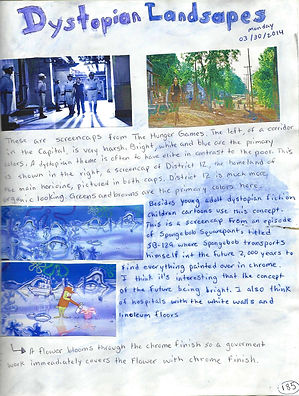 Dystopian Landsapes
monday
03/30/2014
These are screencaps from The Hunger Games. The left, of a corridor
in the Capital, is very harsh. Bright, white and blue are the primary
colors. A dystopian theme is often to have elite in contrast to the poor. This
is shown in the right, a screencap of District 12, the homeland of
the main heroine, pictured in both caps. District 12 is much more
organic looking. Greens and browns are the primary colors here.
Besides young adult dystopian fiction
children cartoons use this concept.
This is a screencap from an episode
of Spongebob Squarepants titled
SB-129 where Spongebob transports
himself int the future 2,000 years to
find everything painted over in chrome.
I think it's interesting that the concept
of the future being bright. I also think
of hospitals with the white walls and
linoleum floors
↳ A flower blooms through the chrome finish so a goverment
work immeadiately covers the flower with chrome finish.
185